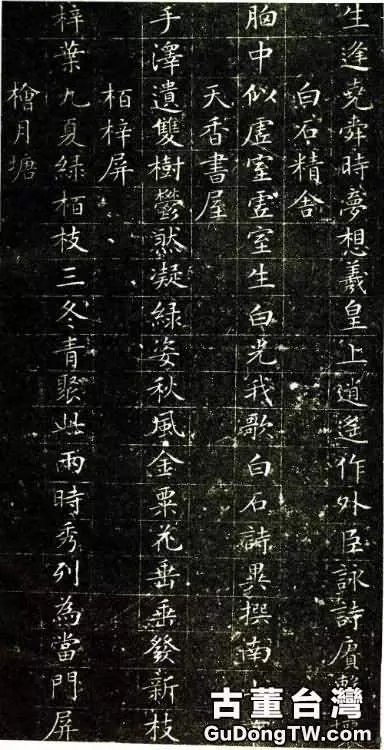 生逢堯舜時夢想羲皇上逍遙作外臣詠詩賡擊壤
白石精舍
胸中似虛室虛室生白光我歌白石詩異撰南
天香書屋
手澤遺雙樹鬱然凝綠姿秋風金粟花垂垂發新枝
栢梓屏
梓葉九夏綠栢枝三冬青聚此兩時秀列為當門屏
檜月塘
古董台灣
GuDongTW.com